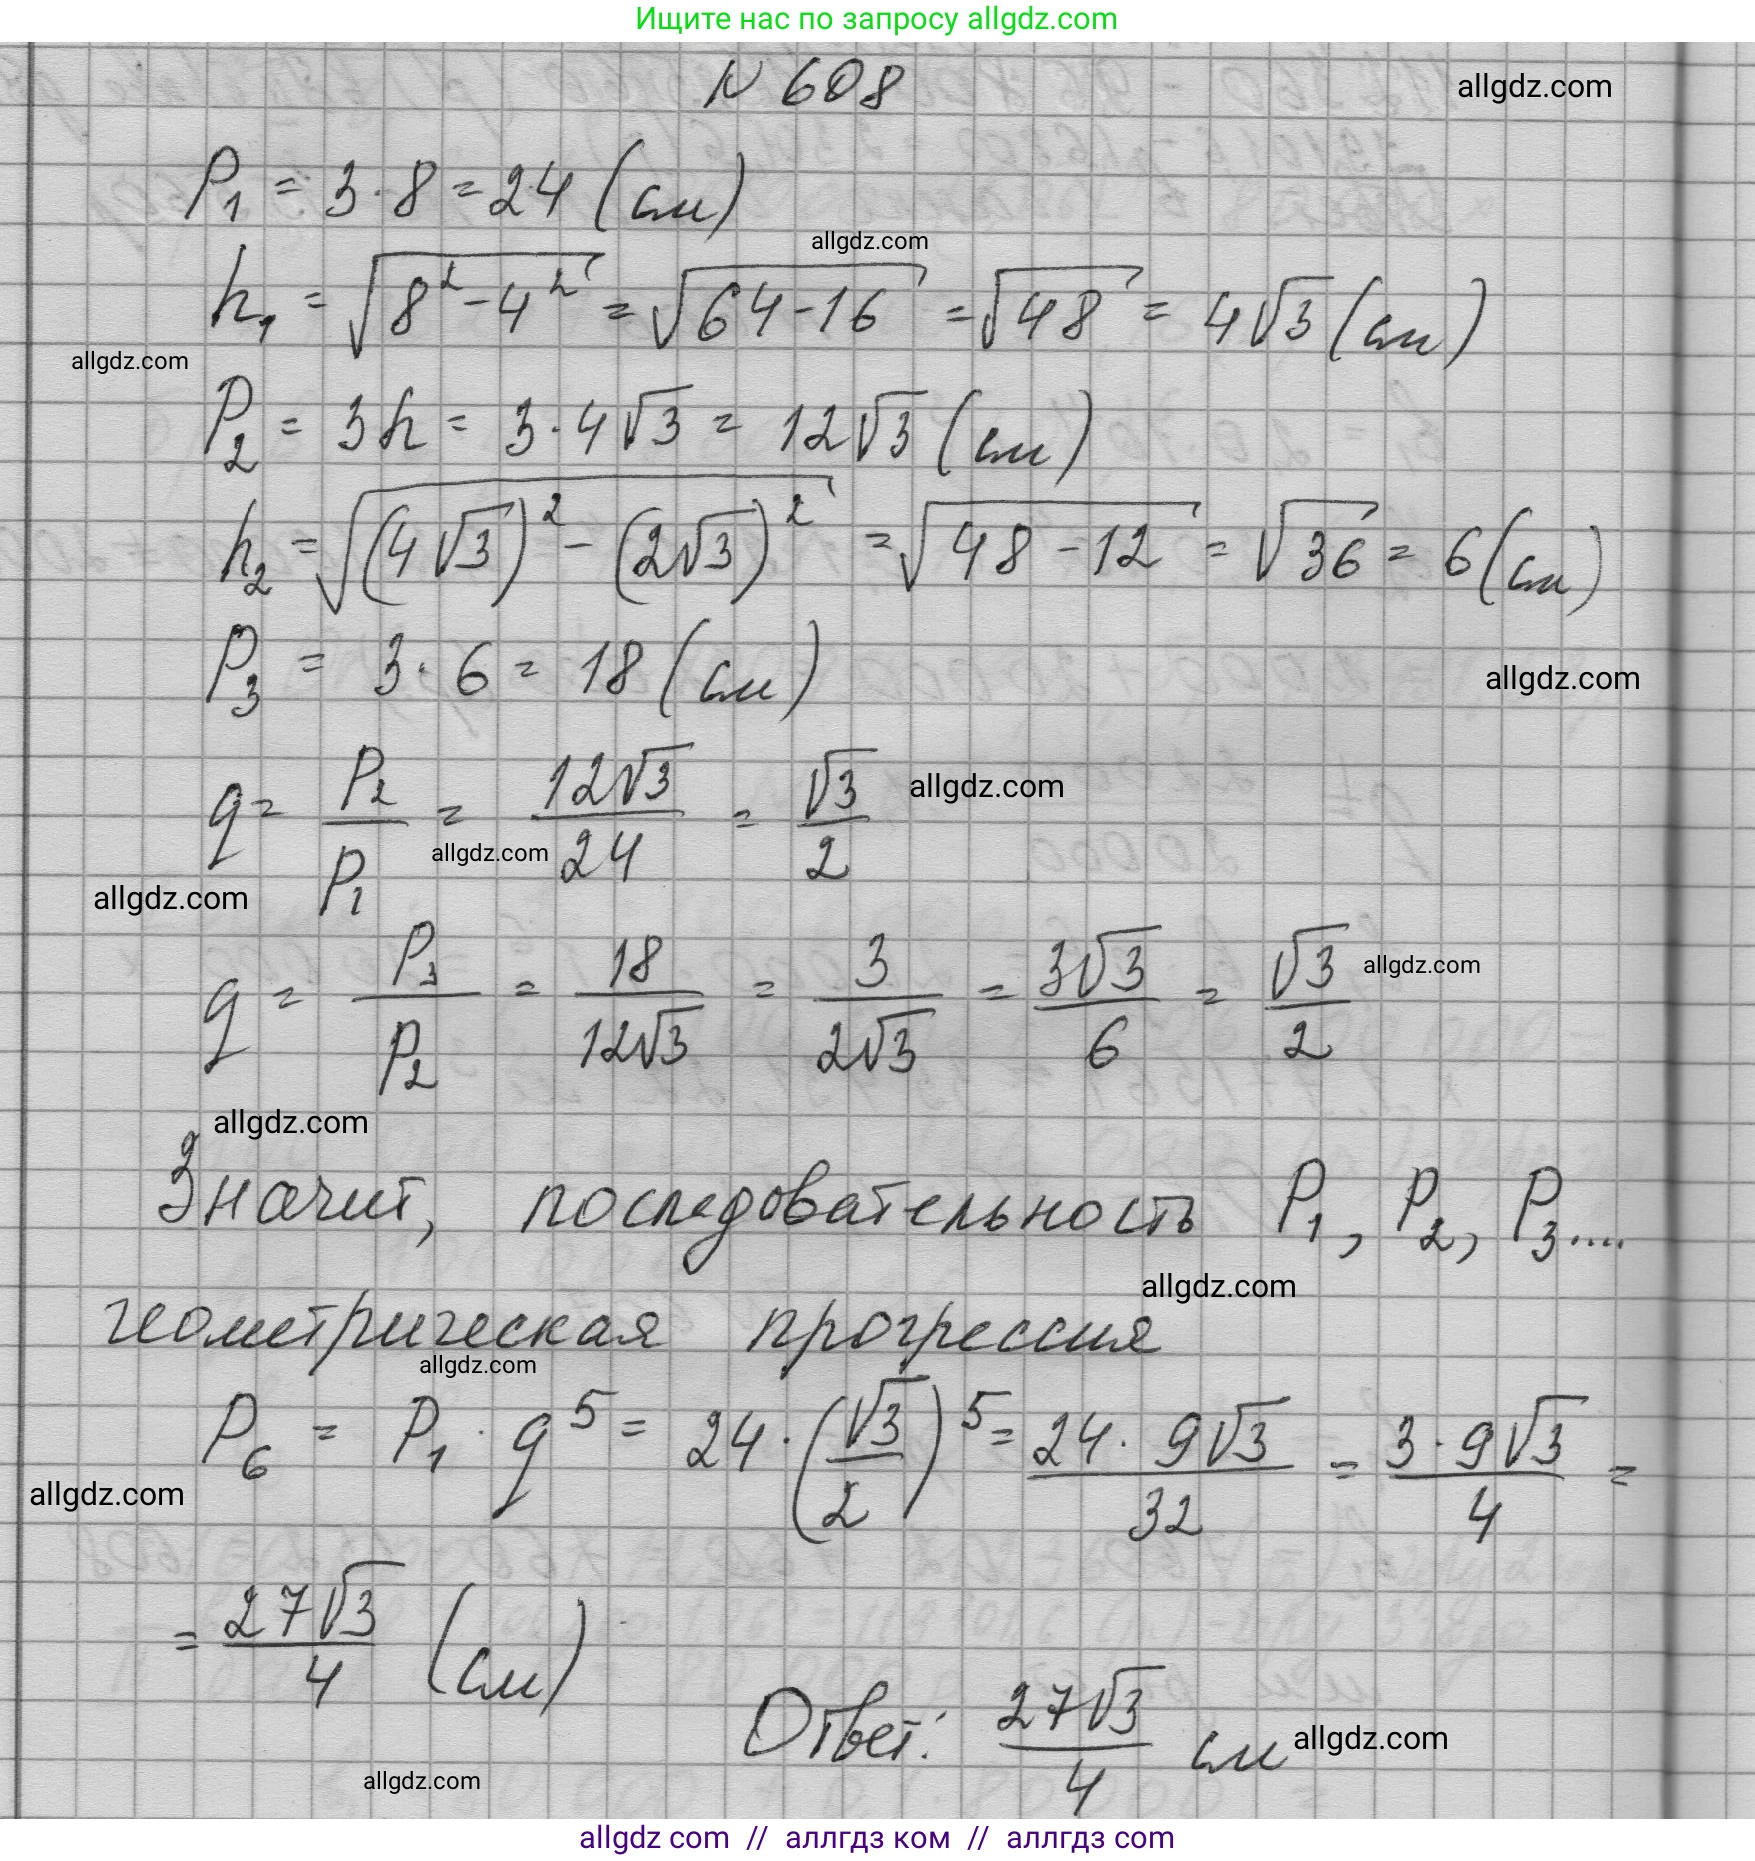 Ищите нас по запросу allgdz.com
N 608
allgdz.com
P₁ = 3·8 = 24 (см)
allgdz.com
h₁ = √(8² - 4²) = √(64 - 16) = √48 = 4√3 (см)
allgdz.com
P₂ = 3h = 3·4√3 = 12√3 (см)
h₂ = √((4√3)² - (2√3)²) = √(48 - 12) = √36 = 6 (см)
P₃ = 3·6 = 18 (см)
allgdz.com
q = P₂/P₁ = 12√3/24 = √3/2
allgdz.com
allgdz.com
allgdz.com
q = P₃/P₂ = 18/12√3 = 3/2√3 = 3√3/6 = √3/2
allgdz.com
allgdz.com
Значит, последовательность P₁, P₂, P₃....
allgdz.com
геометрическая прогрессия
allgdz.com
P₆ = P₁·q⁵ = 24·(√3/2)⁵ = 24·9√3/32 = 3·9√3/4 =
allgdz.com
= 27√3/4 (см)
Ответ: 27√3/4 см
allgdz.com
allgdz.com
allgdz com // аллгдз ком // аллгдз com